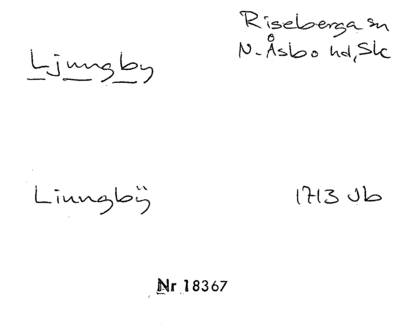 Riseberga sn
Ljungby
N. Åsbo hd, Sk
Liungbÿ
1713 Jb
Nr 18367